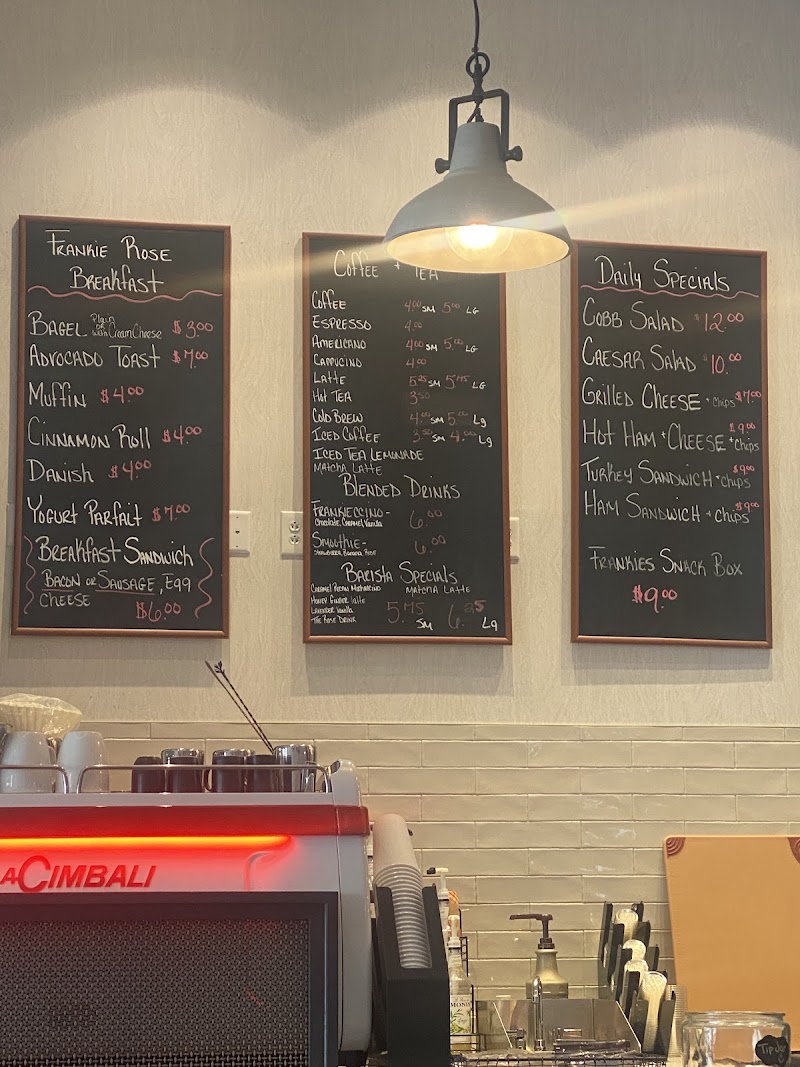 Frankie Rose
Breakfast
Bagel Plain or with Cream Cheese $3.00
Advocado Toast $7.00
Muffin $4.00
Cinnamon Roll $4.00
Danish $4.00
Yogurt Parfait $7.00
Breakfast Sandwich
Bacon or Sausage, Egg
Cheese $6.00
Coffee + Tea
Coffee 4.00 SM 5.00 LG
Espresso 4.00
Americano 4.00 SM 5.00 LG
Cappucino 4.00
Latte 5.25 SM 5.75 LG
Hot Tea 3.50
Cold Brew 4.00 SM 5.00 Lg
Iced Coffee 3.50 SM 4.00 Lg
Iced Tea Lemonade
Matcha Latte
Blended Drinks
Frankieccino - 6.00
Chocolate, Caramel, Vanilla
Smoothie - 6.00
Strawberry, Banana, Rose
Barista Specials
Caramel Pecan Macchiato Matcha Latte
Honey Ginger latte
Lavender Vanilla 5.75 SM 6.25 Lg
The Rose Drink
Daily Specials
Cobb Salad $12.00
Caesar Salad $10.00
Grilled Cheese + chips $7.00
Hot Ham + Cheese + chips $9.00
Turkey Sandwich + chips $9.00
Ham Sandwich + chips $9.00
Frankies Snack Box
$9.00
LaCimbali
Tip Jar